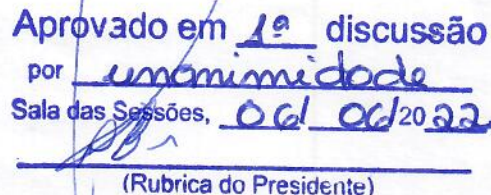 Aprovado em 1ª discussão
por unanimidade
Sala das Sessões, 06/ 06/20 22
(Rubrica do Presidente)